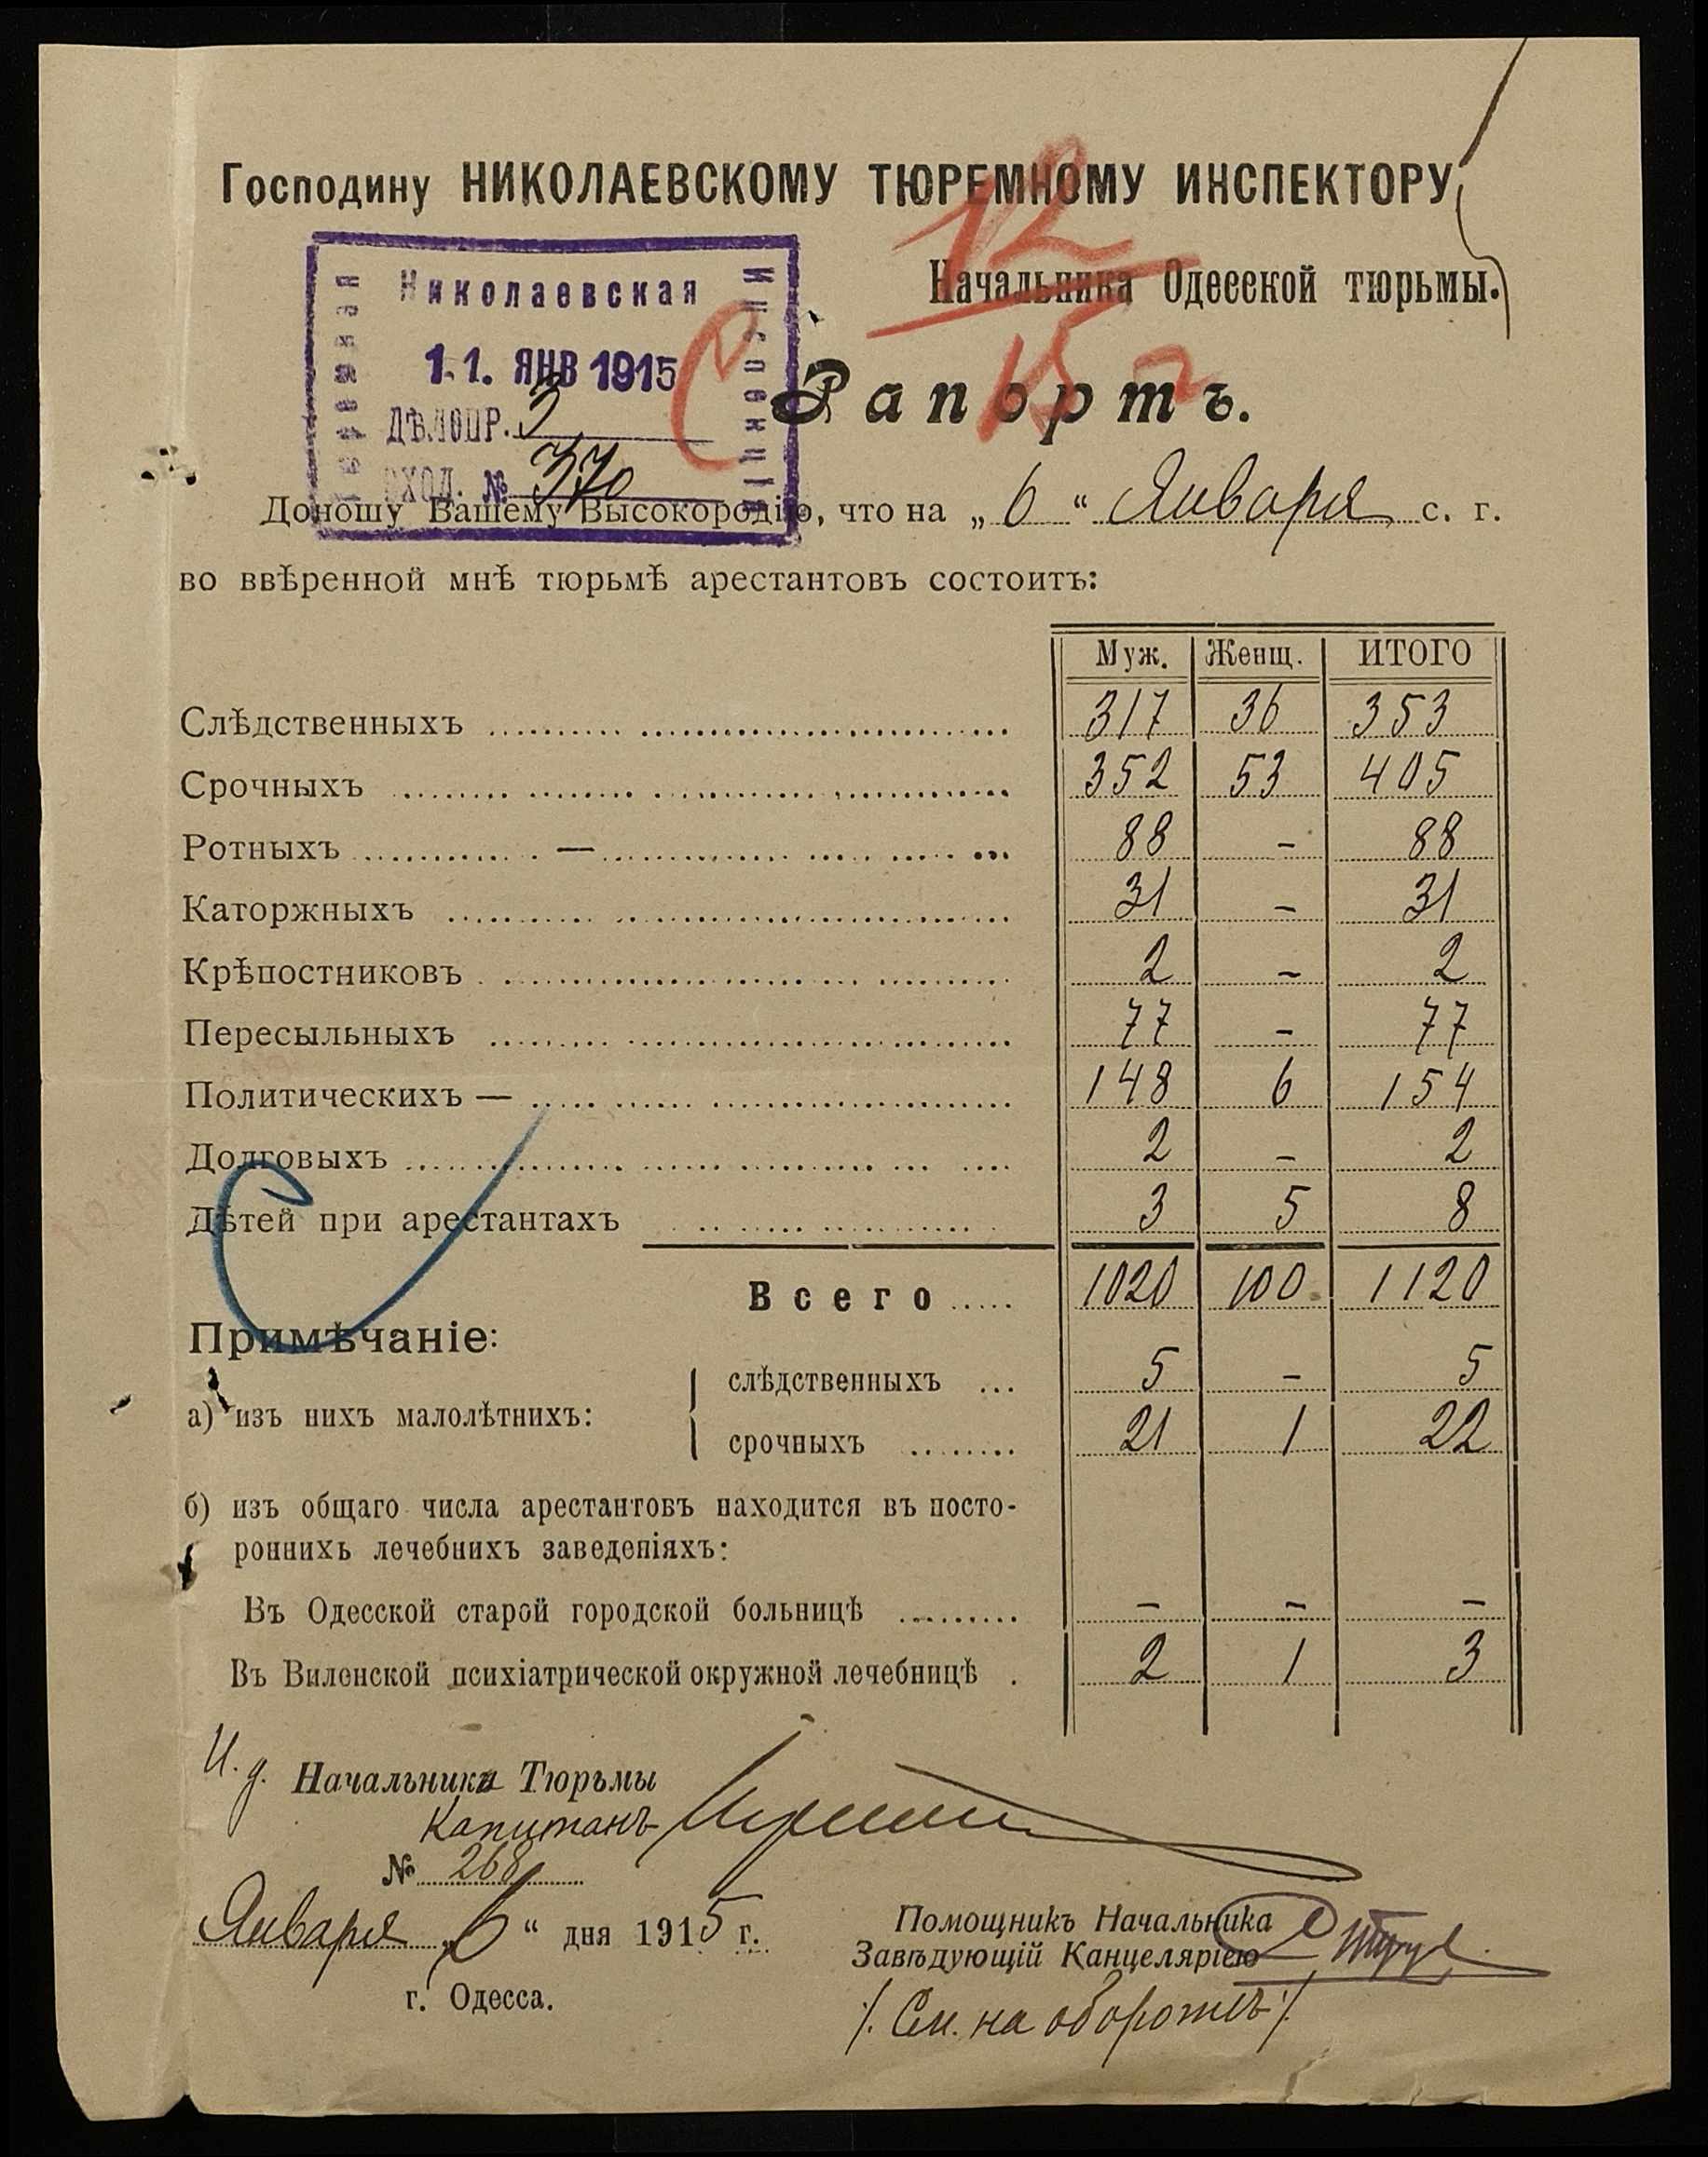 Господину НИКОЛАЕВСКОМУ ТЮРЕМНОМУ ИНСПЕКТОРУ
Начальника Одесской тюрьмы.
Николаевская
Тюремная
Инспекція
11. ЯНВ 1915
ДѢЛОПР. 3
ВХОД. № 370
12
15 г
Рапортъ.
Доношу Вашему Высокородію, что на „6“ Января с. г.
во ввѣренной мнѣ тюрьмѣ арестантовъ состоитъ:
Муж. Женщ. ИТОГО
Слѣдственныхъ 317 36 353
Срочныхъ 352 53 405
Ротныхъ — 88 - 88
Каторжныхъ 31 - 31
Крѣпостниковъ 2 - 2
Пересыльныхъ 77 - 77
Политическихъ — 148 6 154
Долговыхъ 2 - 2
Дѣтей при арестантахъ 3 5 8
Всего 1020 100 1120
Примѣчаніе:
а) изъ нихъ малолѣтнихъ: слѣдственныхъ 5 - 5
срочныхъ 21 1 22
б) изъ общаго числа арестантовъ находится въ посто-
роннихь лечебнихъ заведеніяхъ:
Въ Одесской старой городской больницѣ - - -
Въ Виленской психіатрической окружной лечебницѣ 2 1 3
И. д. Начальника Тюрьмы
Капитанъ
№ 268
Января „6“ дня 1915 г.
г. Одесса.
Помощникъ Начальника
Завѣдующій Канцеляріею
/. См. на оборотѣ ./